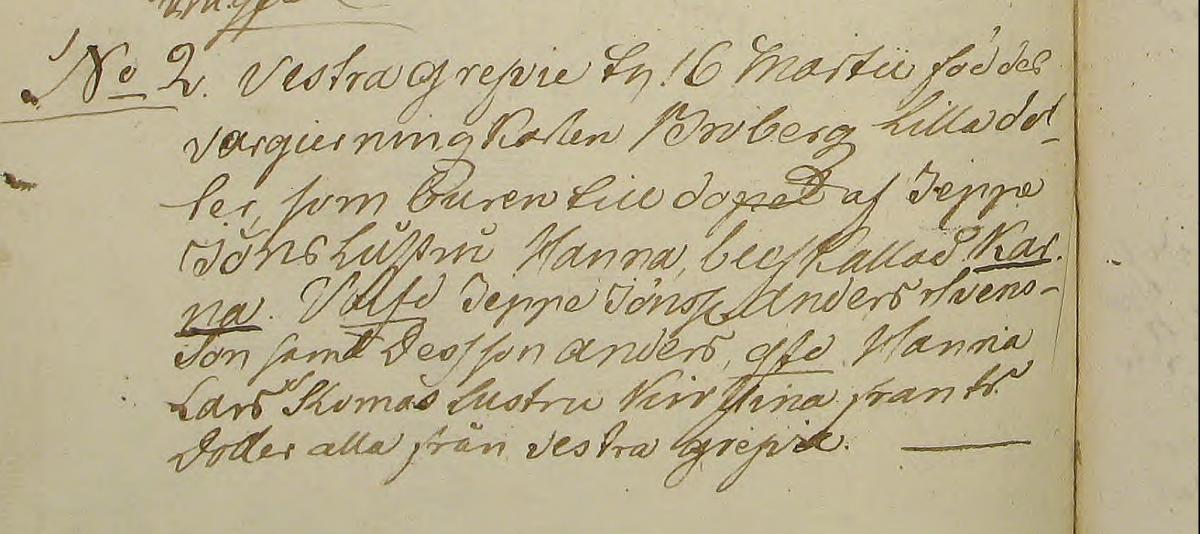 No 2. Vestra grefvie ty 16 Martii föddes
vargierning Karlen Broberg Lilla dot-
ter, som buren till dopet af Jeppe
Jöns hustru Hanna, blef kallad Kar-
na. Jeppe Jönss. anders Svens-
son samt Dess son anders, Hanna
Lars Skomas hustru Kirstina frants
Dotter alla från vestra grefvie.